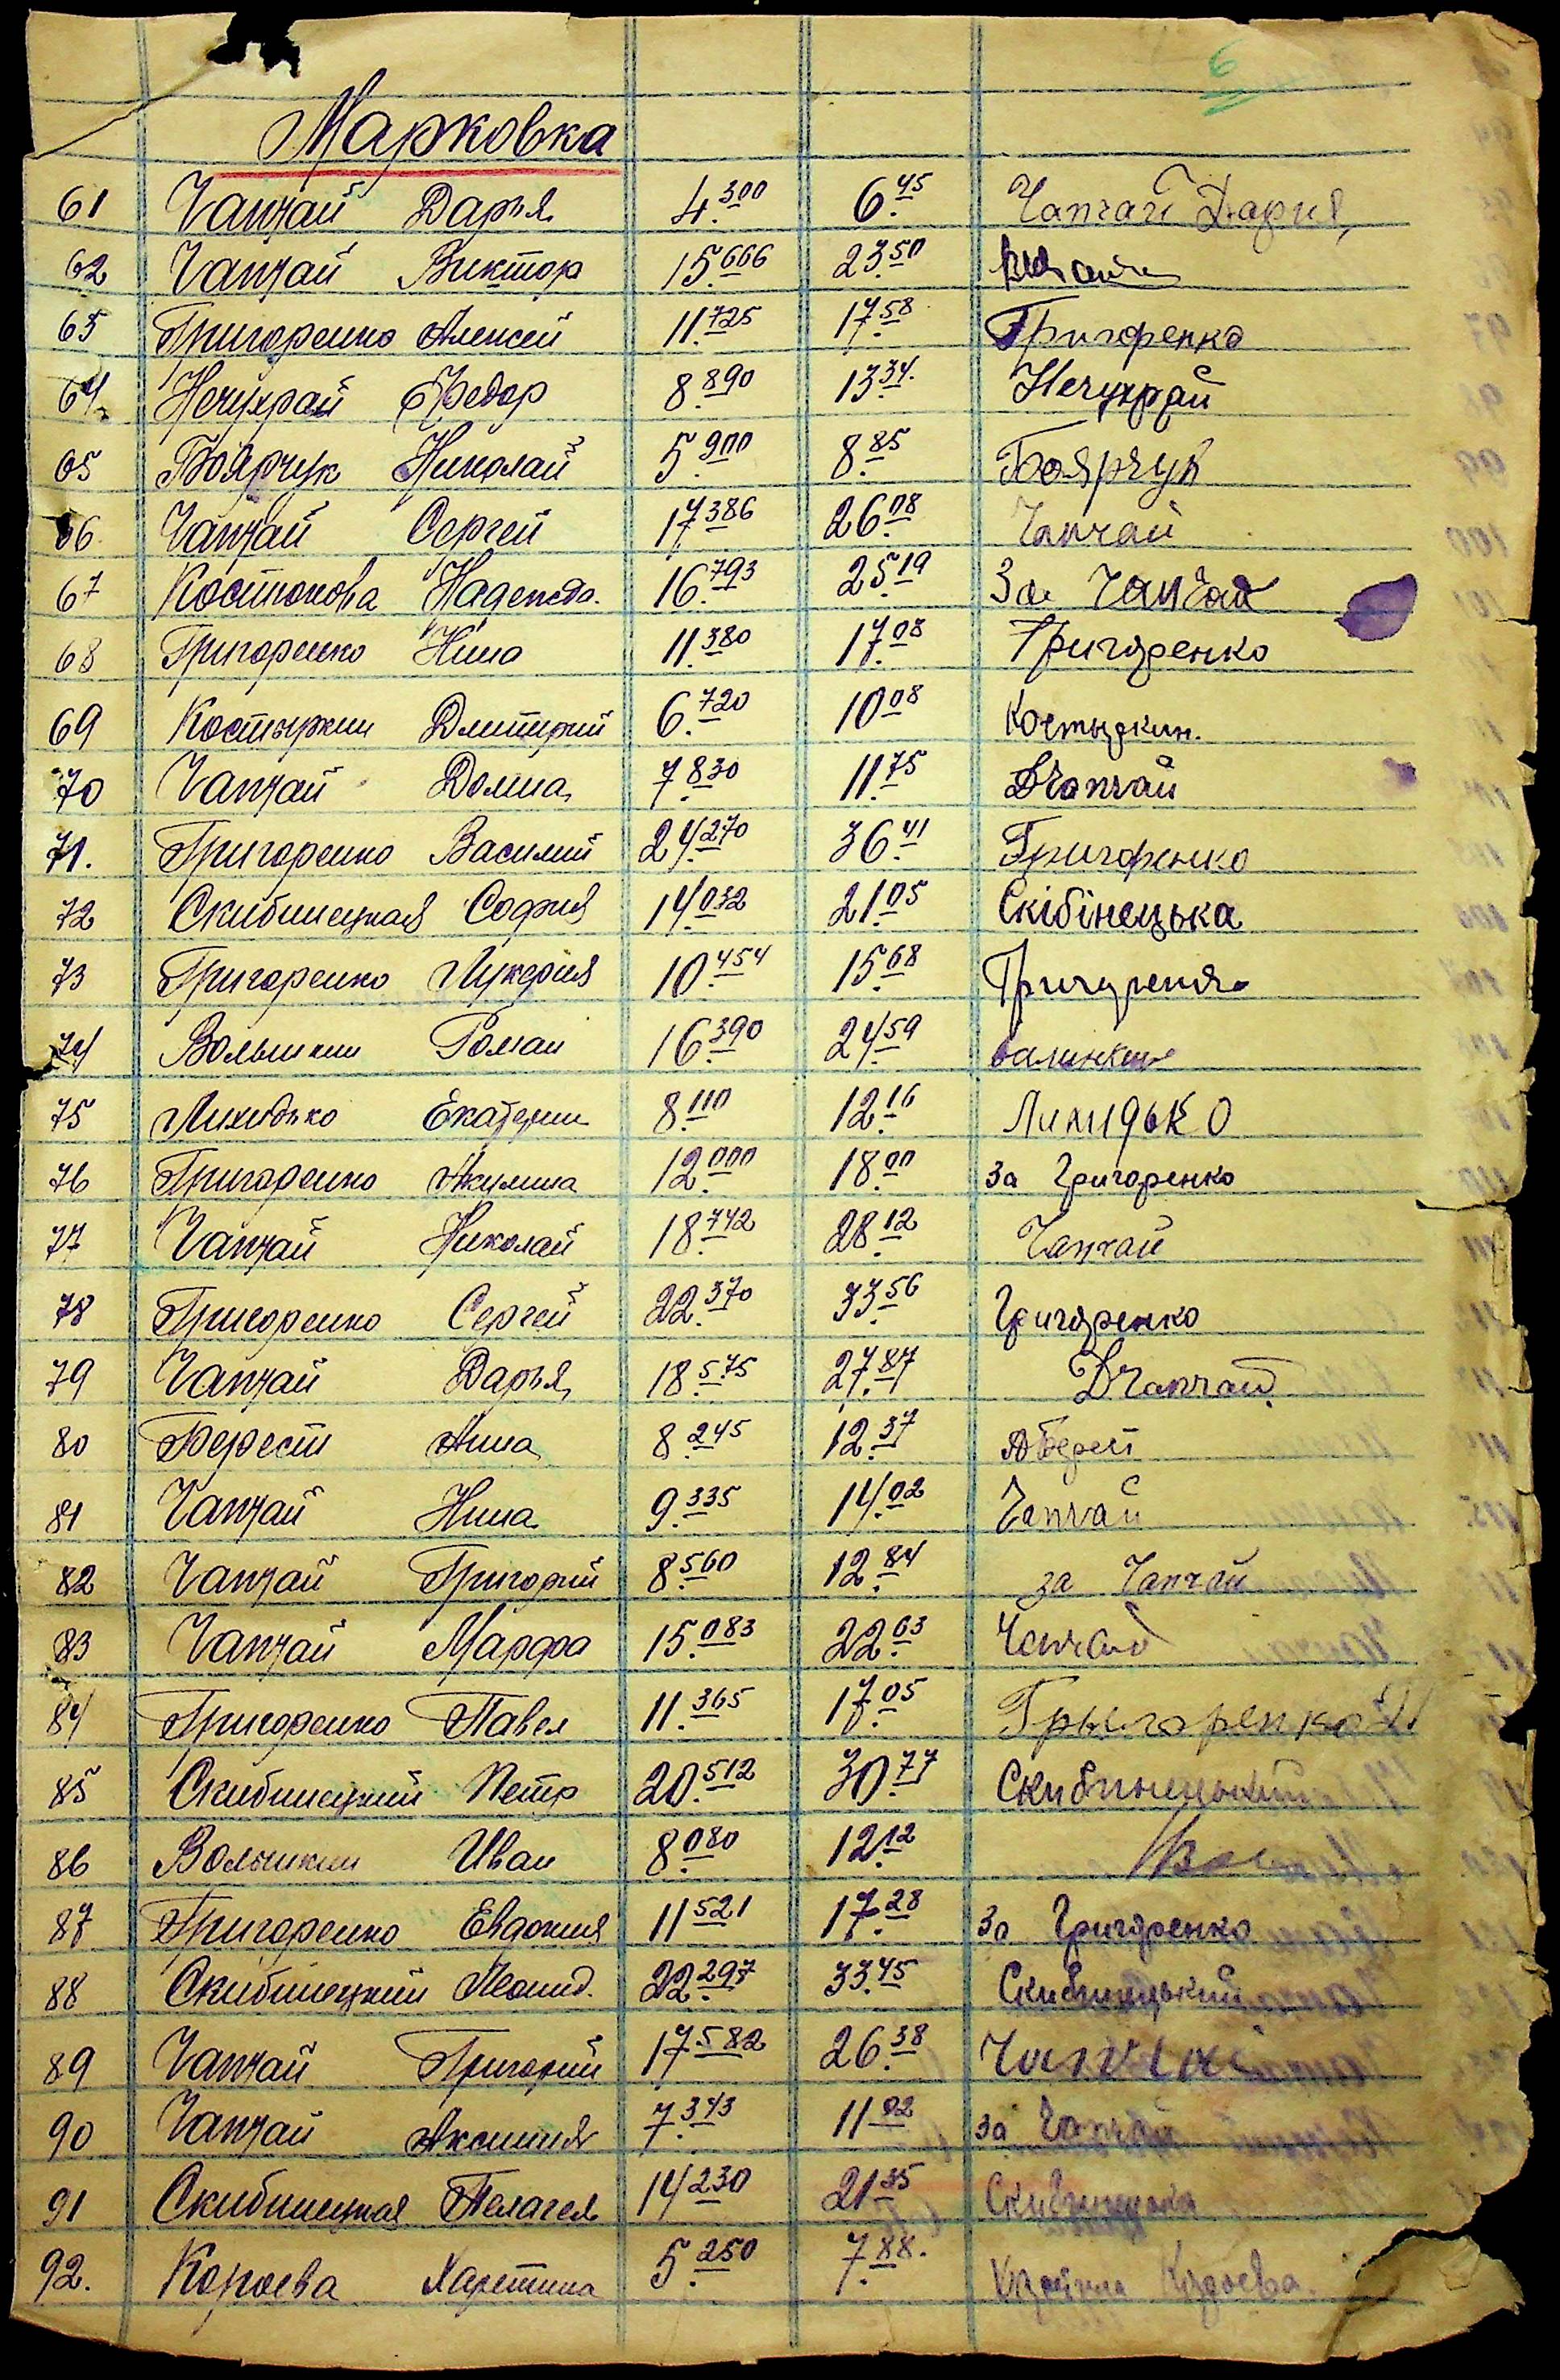 6
Марковка
61 Чапчай Дарья 4.300 6.45 Чапчай Дария
62 Чапчай Виктор 15.666 23.50
63 Григоренко Алексей 11.725 17.58 Григоренко
64 Нечухрай Федор 8.890 13.34 Нечухрай
65 Боярчук Николай 5.900 8.85 Боярчук
66 Чапчай Сергей 17.386 26.08 Чапчай
67 Костюкова Надежда 16.793 25.19 За Чапчай
68 Григоренко Нина 11.380 17.08 Григоренко
69 Костыркин Дмитрий 6.720 10.08 Костыркин.
70 Чапчай Домна 7.830 11.75 ДЧапчай
71. Григоренко Василий 24.270 36.41 Григоренко
72 Скибинецкая София 14.032 21.05 Скібінецька
73 Григоренко Лукерия 10.454 15.68
74 Волынкин Роман 16.390 24.59
75 Лихидько Екатерин 8.110 12.16 Лихидько
76 Григоренко Акулина 12.000 18.00 За Григоренко
77 Чапчай Николай 18.742 28.12 Чапчай
78 Григоренко Сергей 22.370 33.56 Григоренко
79 Чапчай Дарья 18.575 27.87 ДЧапчай
80 Берест Анна 8.245 12.37
81 Чапчай Нина 9.335 14.02 Чапчай
82 Чапчай Григорий 8.560 12.84 за Чапчай
83 Чапчай Марфа 15.083 22.63 Чапчай
84 Григоренко Павел 11.365 17.05 Грыгоренко
85 Скибинецкий Петр 20.512 30.77 Скибинецький
86 Волынкин Иван 8.080 12.12
87 Григоренко Евдокия 11.521 17.28 За Григоренко
88 Скибинецкий Леонид. 22.297 33.45 Скибинецький
89 Чапчай Григорий 17.582 26.38 Чапчай
90 Чапчай Аксиния 7.343 11.02 за Чапчай
91 Скибинецкая Пелагея 14.230 21.35 Скибинецька
92. Короева Харетина 5.250 7.88.